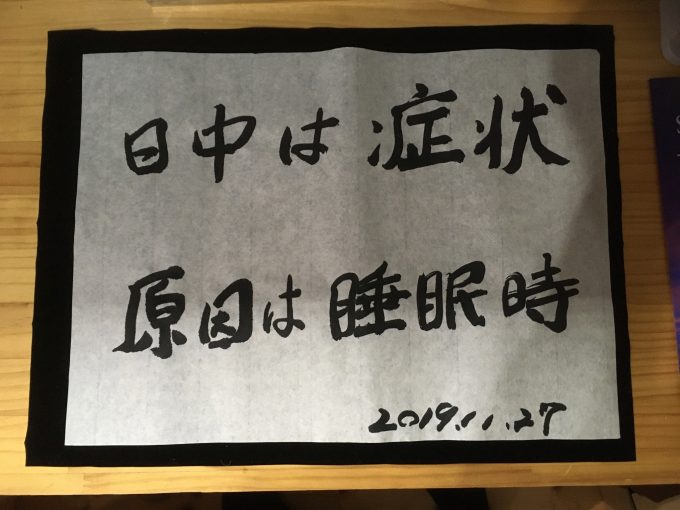 日中は症状
原因は睡眠時
2019.11.27